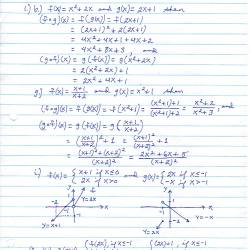 1) b) f(x) = x²+2x and g(x) = 2x+1 then
(f∘g)(x) = f(g(x)) = f(2x+1)
= (2x+1)² + 2(2x+1)
= 4x²+4x+1+4x+2
= 4x²+8x+3, and
(g∘f)(x) = g(f(x)) = g(x²+2x)
= 2(x²+2x)+1
= 2x²+4x+1
g) f(x) = x+1/x+2 and g(x) = x²+1 then
(f∘g)(x) = f(g(x)) = f(x²+1) = (x²+1)+1/(x²+1)+2 = x²+2/x²+3, and
(g∘f)(x) = g(f(x)) = g(x+1/x+2)
= (x+1/x+2)² + 1 = (x+1)²/(x+2)² + 1
= (x+1)²+(x+2)²/(x+2)² = 2x²+6x+5/(x+2)²
f(x) = { x+1 if x≤0
2x if x>0
and g(x) = { 2x if x≤-1
-x if x>-1
y=2x
y=-x
y=2x